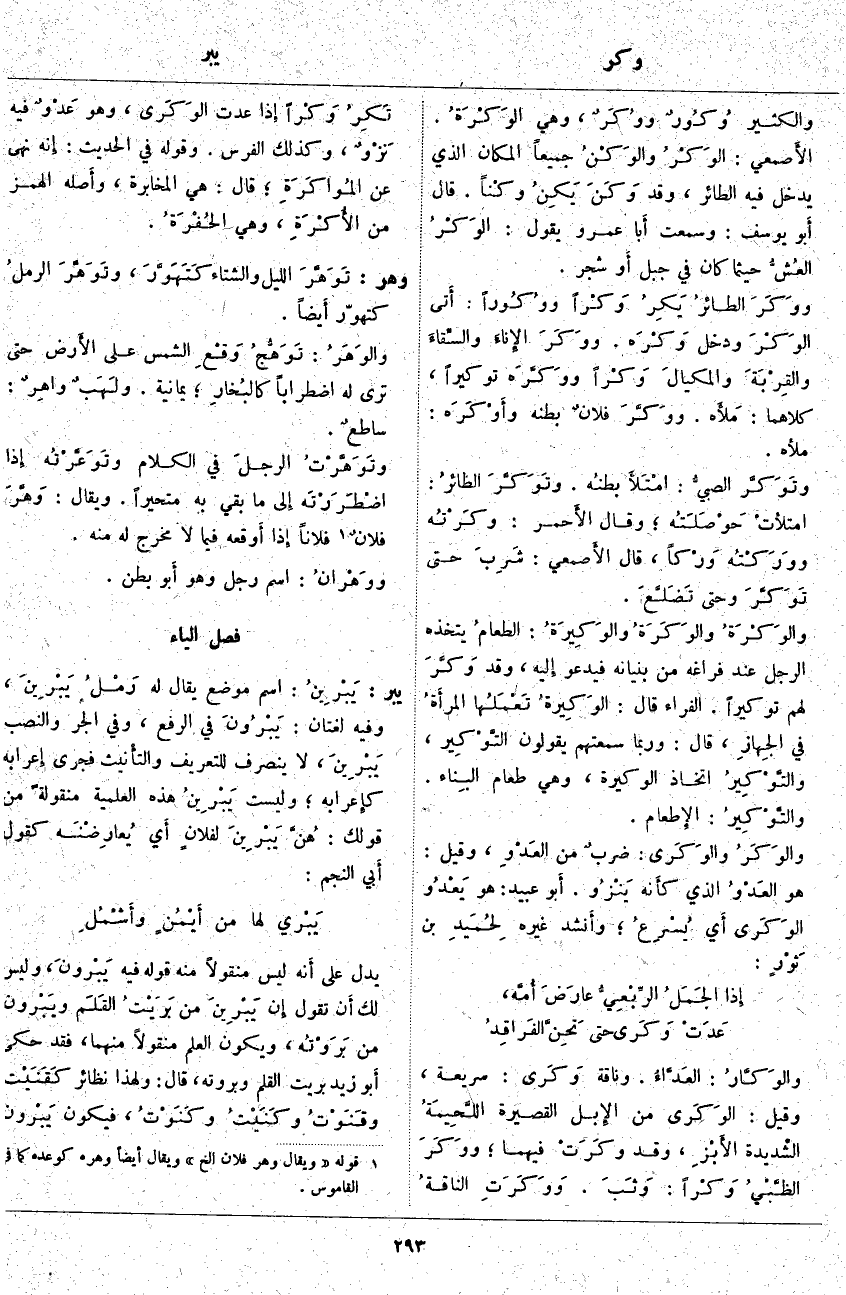 وكر
يبر
والكثير وُكُورٌ ووُكَرٌ، وهي الوَكْرَةُ.
الأَصمعي: الوَكْرُ والوَكْنُ جميعاً المكان الذي
يدخل فيه الطائر، وقد وَكَنَ يَكِنُ وكْناً. قال
أَبو يوسف: وسمعت أَبا عمرو يقول: الوَكْرُ
العُشُّ حيثما كان في جبل أَو شجر.
ووَكَرَ الطائرُ يَكِرُ وَكْراً ووُكُوراً: أَتى
الوَكْرَ ودخل وَكْرَه. ووَكَرَ الإِناءَ والسِّقاءَ
والقِرْبَةَ والمكيالَ وَكْراً ووَكَّرَه توكيراً،
كلاهما: مَلأَه. ووَكَّرَ فلانٌ بطنه وأَوْكَرَه:
ملأَه.
وتَوَكَّر الصبيُّ: امْتَلأَ بطنُه. وتَوَكَّرَ الطائرُ:
امتلأتْ حَوْصَلَتُه؛ وقال الأَحمر: وكَرْتُه
ووَرَكْتُه وَرْكاً، قال الأَصمعي: شَرِبَ حتى
تَوَكَّرَ وحتى تَضَلَّعَ.
والوَكْرَةُ والوَكَرَةُ والوَكِيرَةُ: الطعامُ يتخذه
الرجل عند فراغه من بنيانه فيدعو إليه، وقد وَكَّرَ
لهم توكيراً. الفراء قال: الوَكِيرةُ تَعْمَلُها المرأةُ
في الجِهازِ، قال: وربما سمعتهم يقولون التَّوْكِير،
والتَّوْكِيرُ اتخاذ الوكيرة، وهي طعام البناء.
والتَّوْكِيرُ: الإِطعام.
والوَكَرُ والوَكَرَى: ضربٌ من العَدْوِ، وقيل:
هو العَدْوُ الذي كأَنه يَنْزُو. أَبو عبيد: هو يَعْدُو
الوَكَرَى أَي يُسْرِعُ؛ وأَنشد غيره لِحُمَيدِ بن
ثَوْرٍ:
إذا الجَمَلُ الرِّبْعِيُّ عارَضَ أُمَّه،
عَدَتْ وَكَرَى حتى تَحِنَّ الفَرَاقِدُ
والوَكَّارُ: العَدَّاءُ. وناقة وَكَرَى: سريعة،
وقيل: الوَكَرَى من الإِبل القصيرة اللَّحِيمَةُ
الشديدة الأَبْزِ، وقد وكَرَتْ فيهما؛ ووَكَرَ
الظَّبْيُ وَكْراً: وَثَبَ. ووَكَرَتِ الناقةُ
تَكِرُ وَكْراً إذا عدت الوَكَرَى، وهو عَدْوٌ فيه
نَزْوٌ، وكذلك الفرس. وقوله في الحديث: إنه نهى
عن المُواكَرَةِ؛ قال: هي المخابرة، وأَصله الهمز
من الأُكْرَةِ، وهي الحُفْرَةُ.
وهر: تَوَهَّرَ الليل والشتاء كَتَهَوَّرَ، وتَوَهَّرَ الرملُ
كتهوّر أَيضاً.
والوَهَرُ: تَوَهُّجُ وَقْعِ الشمس على الأَرض حتى
ترى له اضطراباً كالبُخارِ؛ يمانية. ولَهَبٌ واهِرٌ:
ساطعٌ.
وتَوَهَّرْتُ الرجلَ في الكلام وتَوَعَّرْتُه إذا
اضْطَرَرْتَه إلى ما بقي به متحيراً. ويقال: وَهَّرَ
فلانٌ ١ فلاناً إذا أَوقعه فيما لا مخرج له منه.
ووَهْرانُ: اسم رجل وهو أَبو بطن.
فصل الياء
يبر: يَبْرِينُ: اسم موضع يقال له رَمْلُ يَبْرِينَ،
وفيه لغتان: يَبْرُونَ في الرفع، وفي الجر والنصب
يَبْرِينَ، لا ينصرف للتعريف والتأنيث فجرى إعرابه
كإعرابه؛ وليست يَبْرِينُ هذه العلمية منقولةً من
قولك: هُنَّ يَبْرِينَ لفلانٍ أَي يُعارِضْنَه كقول
أَبي النجم:
يَبْرِي لها من أَيْمُنٍ وأَشْمُلِ
يدل على أَنه ليس منقولاً منه قوله فيه يَبْرونَ، وليس
لك أَن تقول إن يَبْرِينَ من بَرَيْتُ القَلَم ويَبْرُون
من بَرَوْتُه، ويكون العلم منقولاً منهما، فقد حكى
أَبو زيد بريت القلم وبروته، قال: ولهذا نظائر كَقَنَيْت
وقَنَوْتُ وكَنَيْتُ وكَنَوْتُ، فيكون يَبْرُون
١ قوله «ويقال وهر فلان الخ» ويقال أيضاً وهره كوعده كما في
القاموس.
٢٩٣